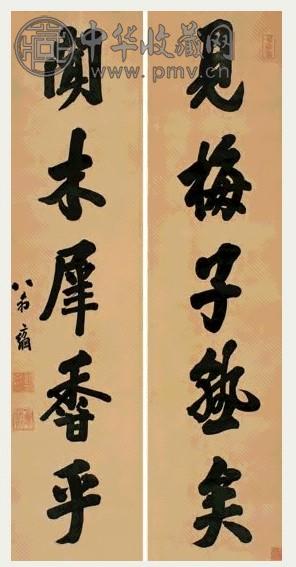 中华收藏网
www.pmv.cn
見梅子熟矣
聞木犀香乎